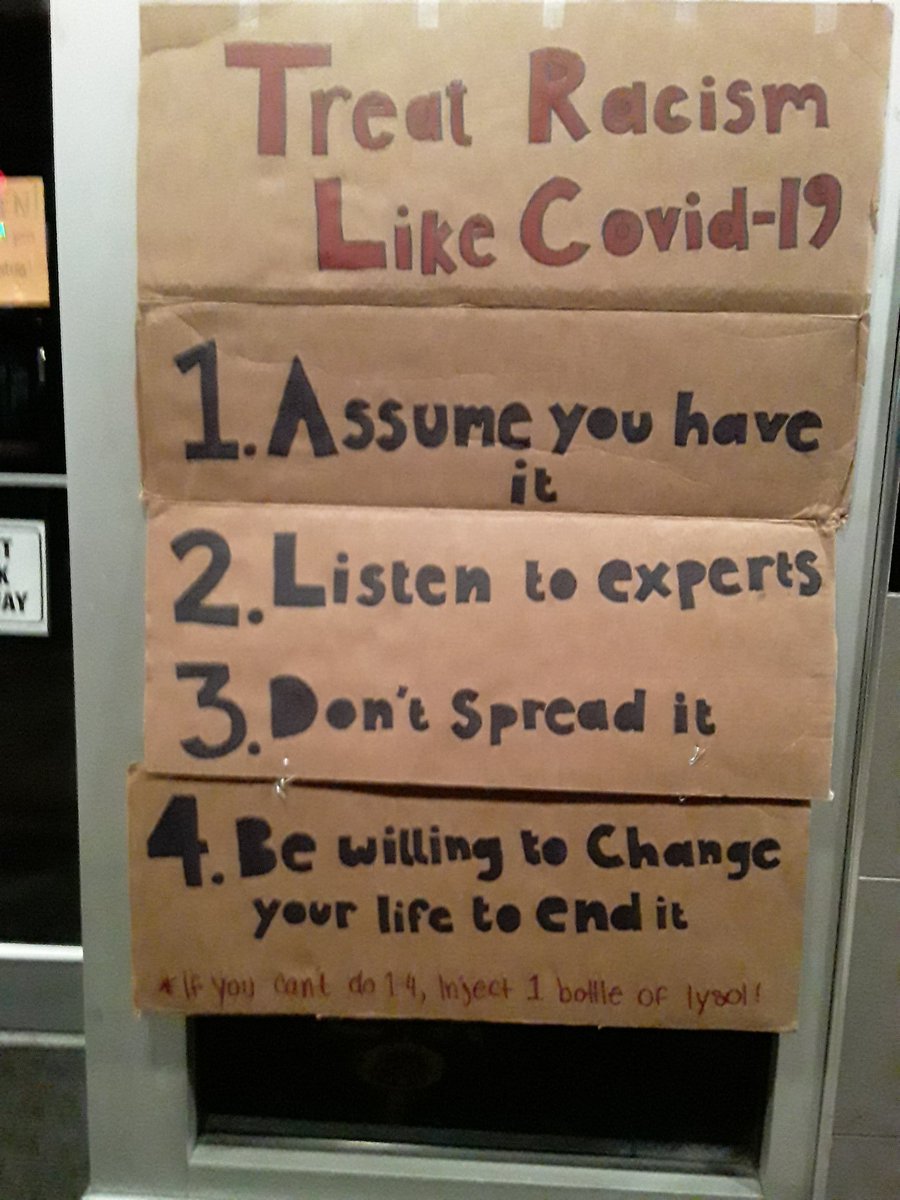 Treat Racism
Like Covid-19
1. Assume you have
it
2. Listen to experts
3. Don't Spread it
4. Be willing to Change
your life to end it
*If you cant do 1-4, Inject 1 bottle of lysol!